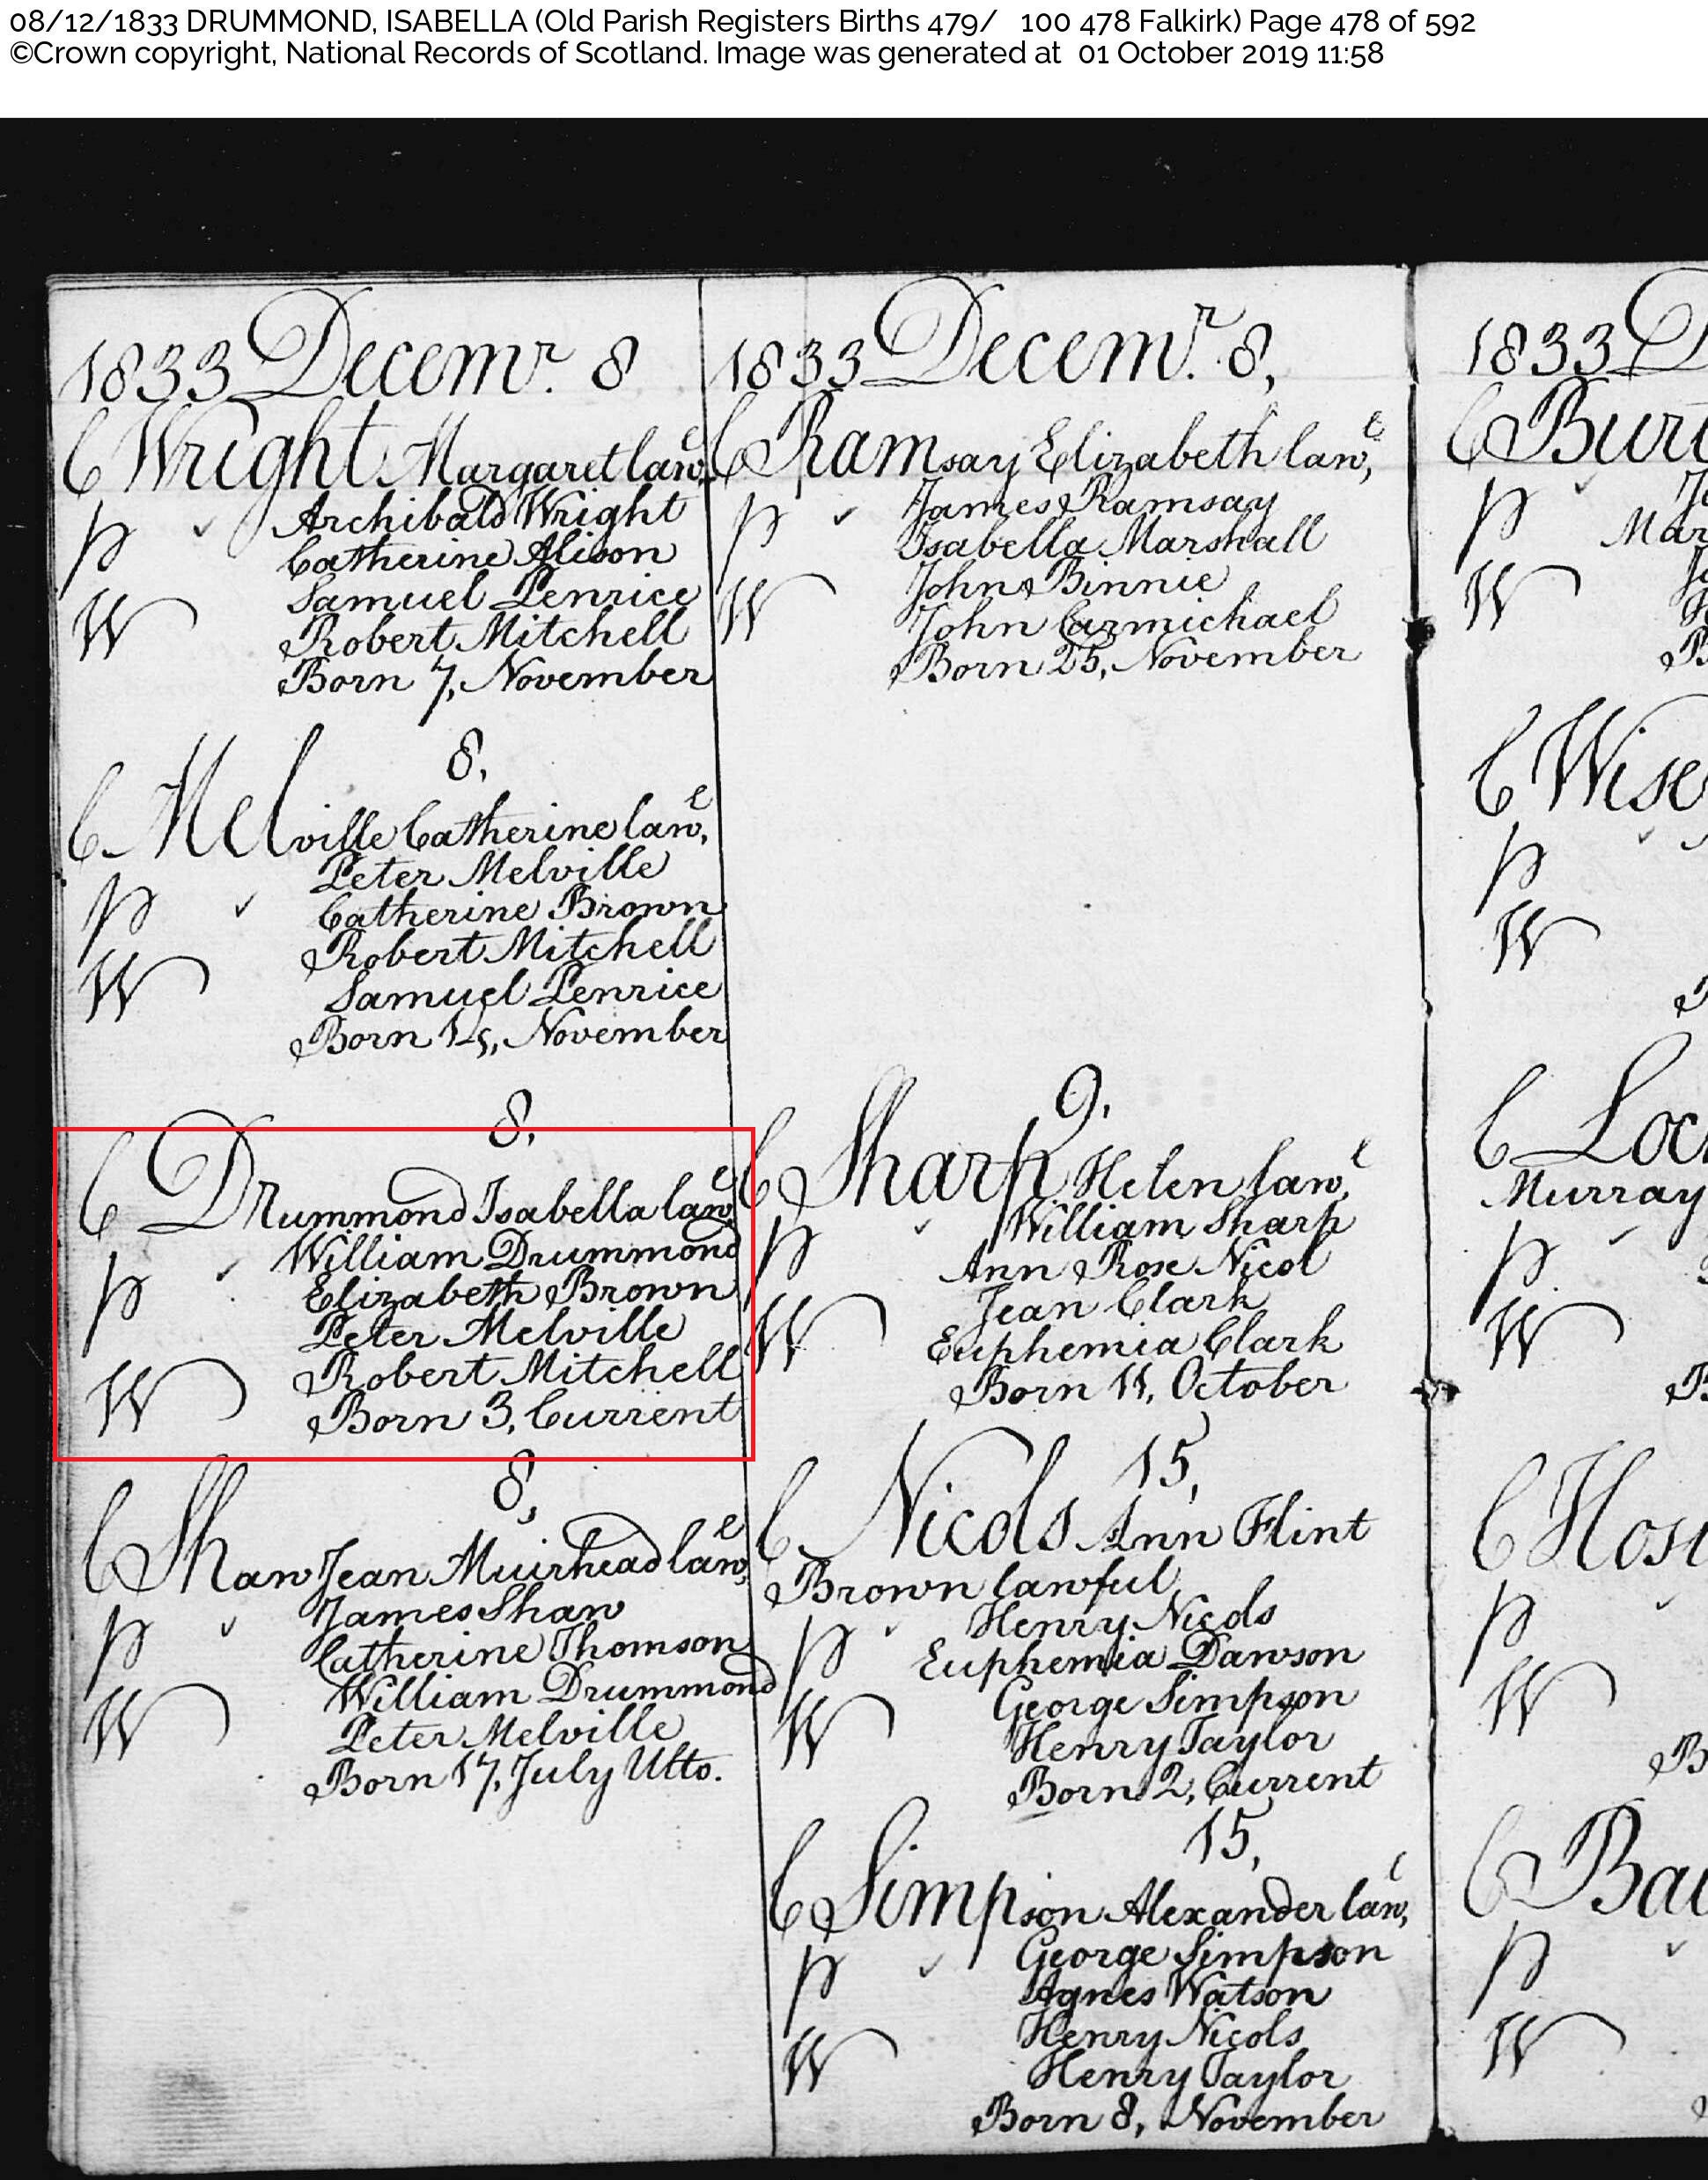 08/12/1833 DRUMMOND, ISABELLA (Old Parish Registers Births 479/ 100 478 Falkirk) Page 478 of 592
©Crown copyright, National Records of Scotland. Image was generated at 01 October 2019 11:58
1833 Decemr. 8
C Wright Margaret lawe
p Archibald Wright
Catherine Alison
Samuel Penrice
W Robert Mitchell
Born 7, November
8,
C Melville Catherine lawe,
Peter Melville
p Catherine Brown
Robert Mitchell
W Samuel Penrice
Born 15, November
8,
C Drummond Isabella lawe
William Drummond
p Elizabeth Brown
Peter Melville
W Robert Mitchell
Born 3, Current
8,
C Shaw Jean Muirhead lawe,
p James Shaw
Catherine Thomson
W William Drummond
Peter Melville
Born 17, July Ulto.
1833 Decemr. 8,
C Ramsay Elizabeth lawe,
p James Ramsay
Isabella Marshall
W John Binnie
John Carmichael
Born 25, November
9,
C Sharp Helen lawe,
p William Sharp
Ann Rose Nicol
W Jean Clark
Euphemia Clark
Born 11, October
15,
C Nicols Ann Flint
Brown lawful
p Henry Nicols
Euphemia Dawson
W George Simpson
Henry Taylor
Born 2, Current
15,
C Simpson Alexander lawe,
p George Simpson
Agnes Watson
W Henry Nicols
Henry Taylor
Born 8, November
1833 D
C Bur
p
Mar
W
C Wise
p
W
C Loc
Murray
p
W
C Hos
p
W
C Ba
p
W